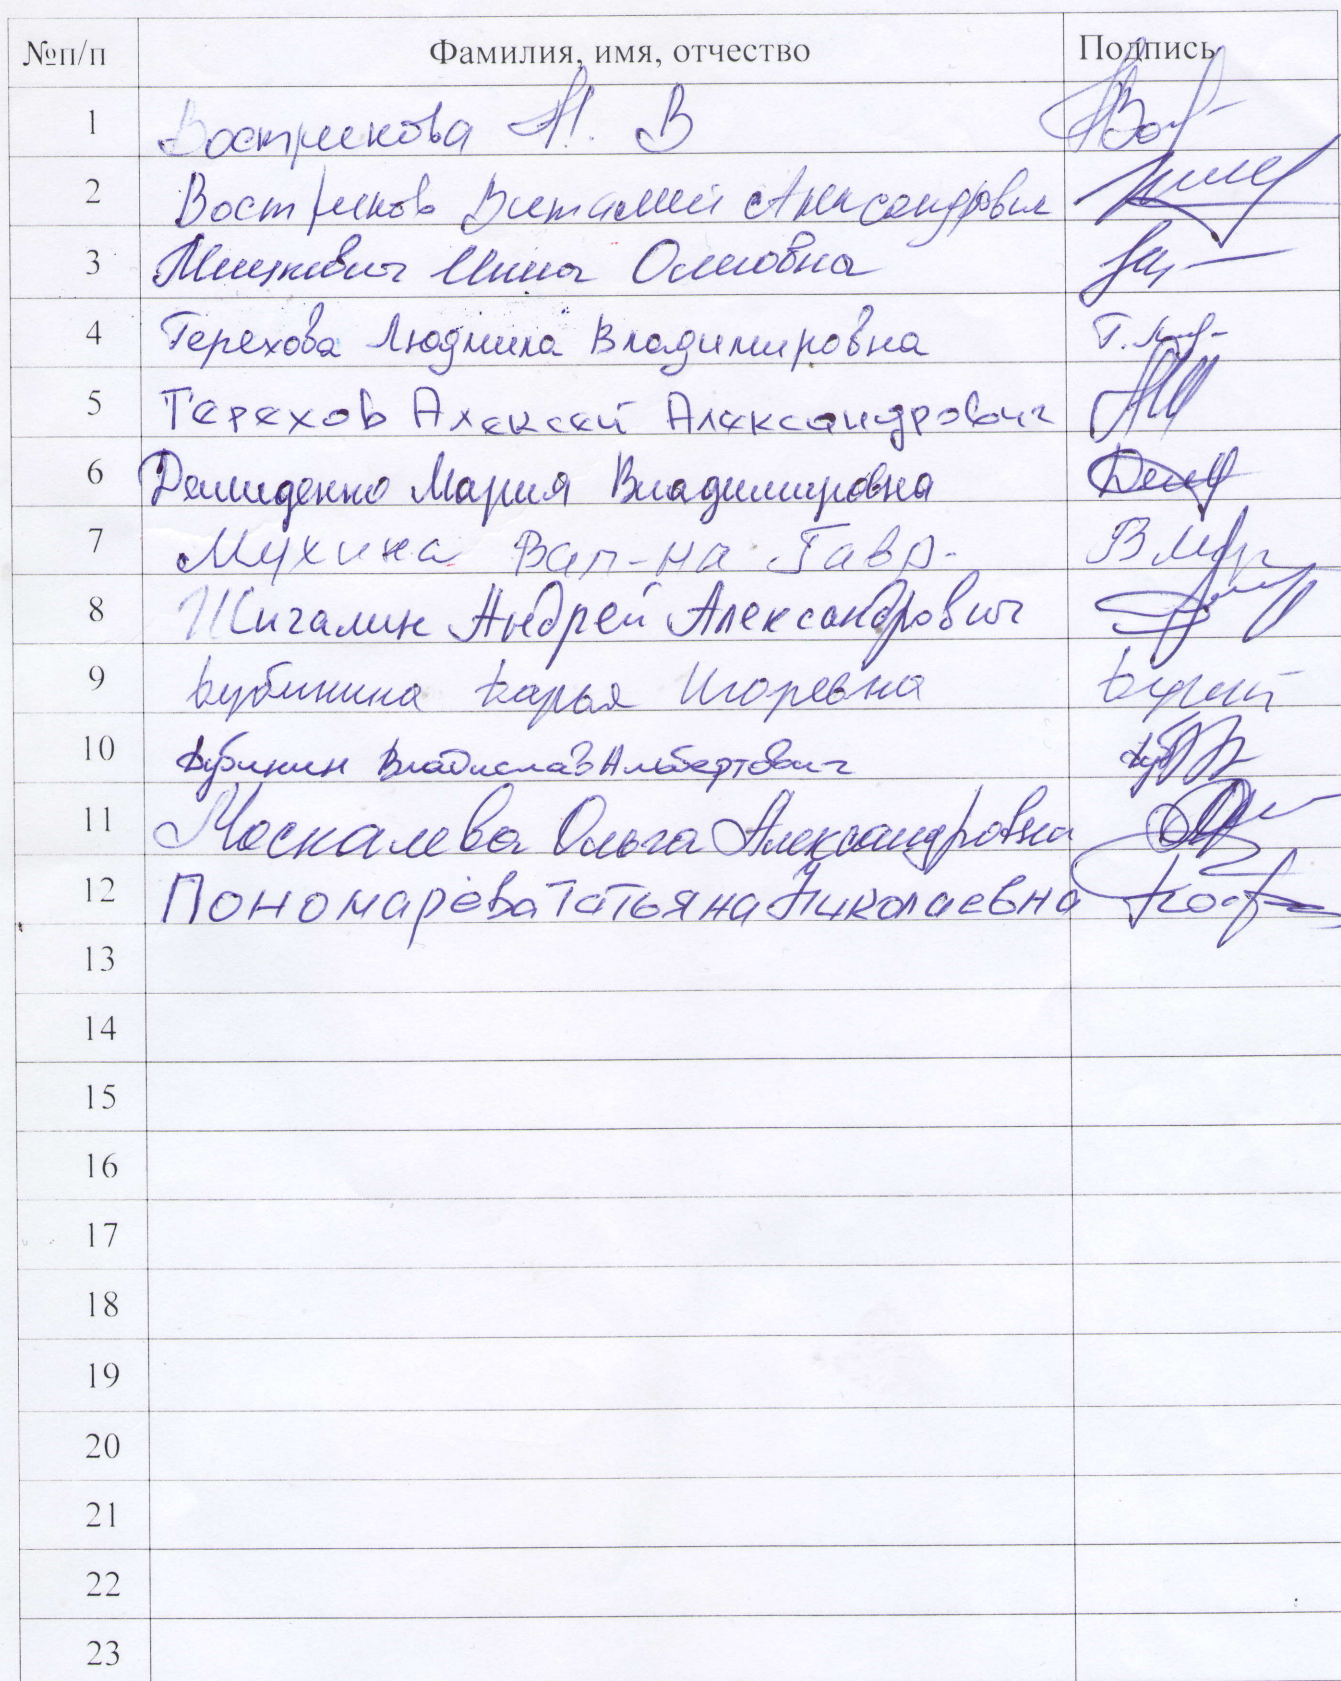 №п/п Фамилия, имя, отчество Подпись
1 Вострикова Н. В
2 Востриков Виталий Александрович
3 Мицкевич Инна Олеговна
4 Терехова Людмила Владимировна Т.
5 Терехов Алексей Александрович
6 Демиденко Мария Владимировна
7 Мухина Вал-на Гавр.
8 Жигалин Андрей Александрович
9 Дубинина Дарья Игоревна
10 Дубинин Владислав Альбертович
11 Москалева Ольга Александровна
12 Пономарёва Татьяна Николаевна
13
14
15
16
17
18
19
20
21
22
23